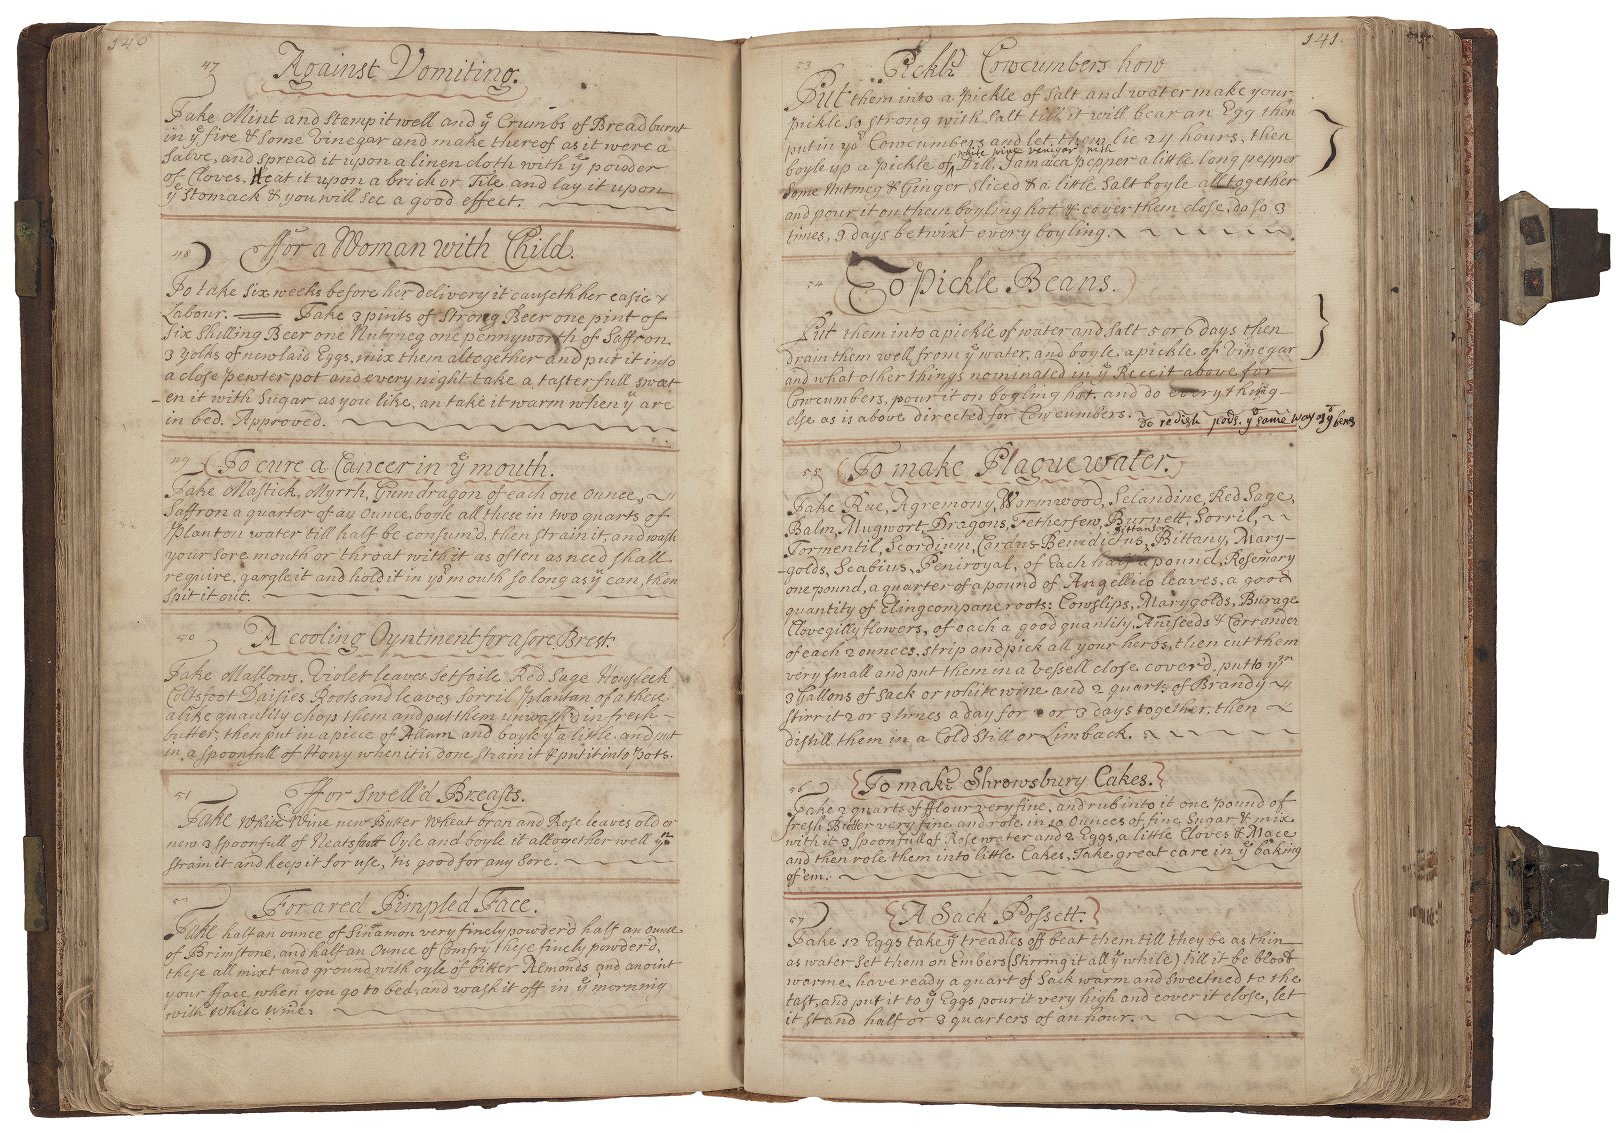 140
47
Against Vomiting.
Take Mint and stamp it well and yͤ Crumbs of Bread burnt
in yͤ fire & some Vinegar and make thereof as it were a
Salve, and spread it upon a linen cloth with yͤ powder
of Cloves. Heat it upon a brick or Tile and lay it upon
yͤ Stomack & you will see a good effect.
48
ffor a Woman with Child.
To take six weeks before her delivery it causeth her easie
Labour. Take 3 pints of strong Beer one pint of
six shilling Beer one Nutmeg one pennyworth of Saffron
3 yolks of newlaid Eggs, mix them altogether and put it into
a close pewter pot and every night take a taster full sweet
en it with Sugar as you like, an take it warm when yͤ are
in bed. Approved.
49
To cure a Cancer in yͤ mouth.
Take Mastick, Myrrh, Gumdragon of each one Ounce,
Saffron a quarter of an Ounce, boyle all these in two quarts of
Planton water till half be consum'd, then strain it, and wash
your sore mouth or throat with it as often as need shall
require, gargle it and hold it in yoͬ mouth so long as yͤ can, then
spit it out.
50
A cooling Oyntment for a sore Brest.
Take Mallows, Violet leaves Setfoile Red Sage Housleek
Coltsfoot Daisies Roots and leaves Sorril plantan of a these
alike quantity chop them and put them unwash'd in fresh
butter, then put in a piece of Allum and boyle yͫ a little and put
in a spoonfull of Hony when it is done strain it & put it into pots.
51
ffor Swell'd Breasts.
Take White Wine new Buter Wheat bran and Rose leaves old or
new 3 spoonfull of Neatsfoott Oyle and boyle it altogether well yͫ
strain it and keep it for use, 'tis good for any Sore.
52
For a red Pimpled Face.
Take half an ounce of Sinamon very finely powder'd half an ounce
of Brimstone, and half an Ounce of Comfry these finely powder'd,
these all mixt and ground with oyle of bitter Almonds and anoint
your fface when you go to bed, and wash it off in yͤ morning
with White wine.
141
53
Pickle Cowcumbers how
Put them into a pickle of Salt and water make your
pickle so strong with Salt till it will bear an Egg then
put in yoͬ Cowcumbers and let them lie 24 hours, then
white wine veniger with
boyle up a pickle of ^ Dill, Jamaica pepper a little long pepper
some Nutmeg & Ginger sliced & a little Salt boyle alltogether
and pour it on them boyling hot & cover them close, do so 3
times, 3 days betwixt every boyling.
54
To Pickle Beans.
Put them into a pickle of water and Salt 5 or 6 days then
drain them well from yͤ water, and boyle a pickle of Vinegar
and what other things nominated in yͤ Receit above for
Cowcumbers, pour it on boyling hot. and do every thing
else as is above directed for Cowcumbers.
Do redish pods. yͤ same way as yͤ bens
55
To make Plague water.
Take Rue, Agremony, Wormwood, Selandine, Red Sage,
Balm, Mugwort, Dragons, Fetherfew, Burnett, Sorril,
Tormentil, Scordium, Cardus Benidictus, Bittany, Mary-
golds, Scabius, Peniroyal, of Each half a pound, Rosemary
one pound, a quarter of a pound of Angellico leaves, a good
quantity of Elingcompane roots: Cowslips, Marygolds, Burage
Clovegillyflowers, of each a good quantity, Aniseeds & Corrander
of each 2 ounces, strip and pick all your herbs, then cut them
very small and put them in a Vessell close cover'd, put to yͫ
3 Gallons of Sack or white wine and 2 quarts of Brandy
stirr it 2 or 3 times a day for 2 or 3 days together, then
distill them in a Cold Still or Limback.
56
To make Shrowsbury Cakes.
Take 2 quarts of fflour very fine, and rub into it one pound of
fresh Butter very fine and role in 10 ounces of fine Sugar & mix
with it 3 spoonfull of Rosewater and 2 Eggs, a little Cloves & Mace
and then role them into little Cakes, Take great care in yͤ baking
of 'em.
57
A Sack Possett.
Take 12 Eggs take yͤ treadles off beat them till they be as thin
as water set them on Embers (stirring it all yͤ while) till it be blood
warme, have ready a quart of Sack warm and sweetned to the
tast, and put it to yͤ Eggs pour it very high and cover it close, let
it stand half or 3 quarters of an hour.